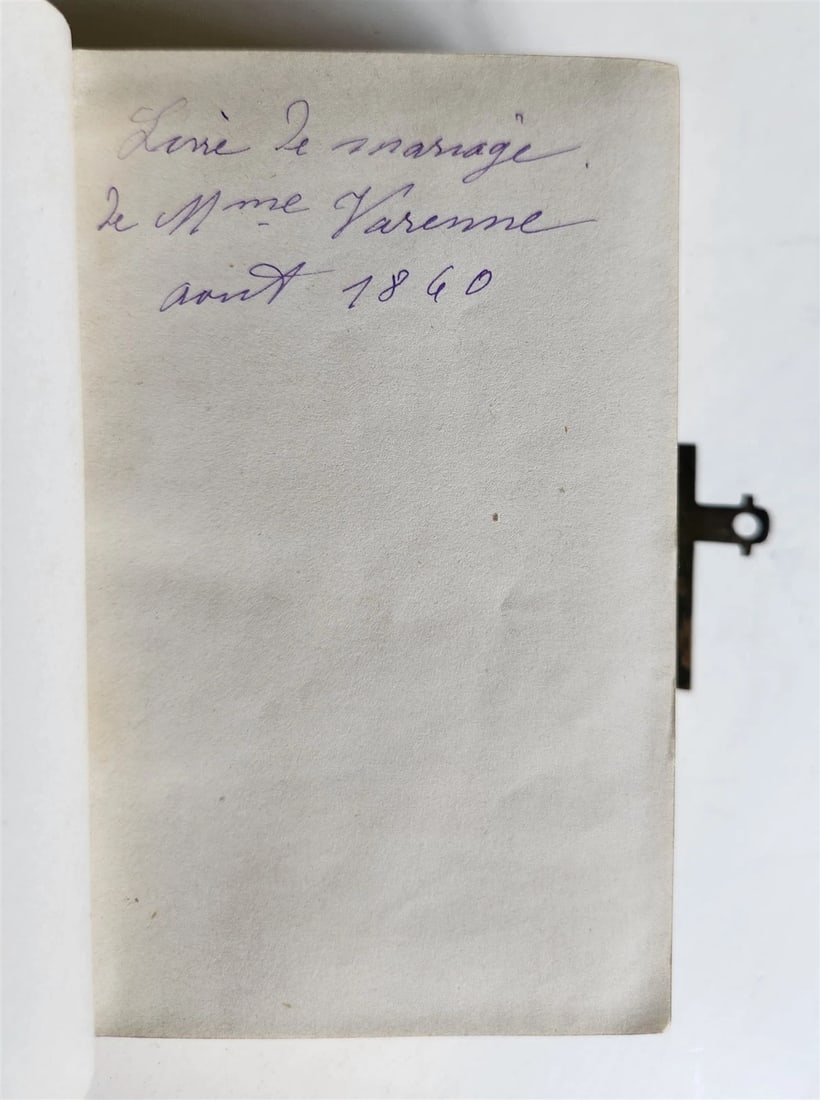 Livre de mariage.
de Mme Varenne
aout 1860